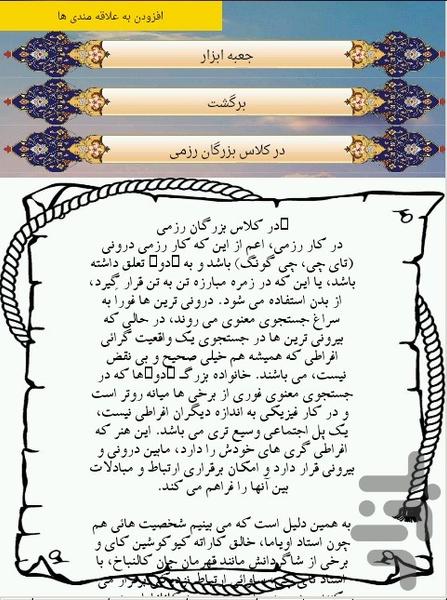 افزودن به علاقه مندی ها
جعبه ابزار
برگشت
در کلاس بزرگان رزمی
در کلاس بزرگان رزمی
در کار رزمی، اعم از این که کار رزمی درونی
(تای چی، چی گونگ) باشد و به دو تعلق داشته
باشد، یا این که در زمره مبارزه تن به تن قرار گیرد،
از بدن استفاده می شود. درونی ترین ها فورا به
سراغ جستجوی معنوی می روند، در حالی که
بیرونی ترین ها در جستجوی یک واقعیت گرائی
افراطی که همیشه هم خیلی صحیح و بی نقض
نیست، می باشند. خانواده بزرگ دوها که در
جستجوی معنوی فوری از برخی ها میانه روتر است
و در کار فیزیکی به اندازه دیگران افراطی نیست،
یک پل اجتماعی وسیع تری می باشد. این هنر که
افراطی گری های خودش را دارد، مابین درونی و
بیرونی قرار دارد و امکان برقراری ارتباط و مبادلات
بین آنها را فراهم می کند.
به همین دلیل است که می بینیم شخصیت هائی هم
چون استاد اویاما، خالق کاراته کیوکوشین کای و
برخی از شاگردانش مانند قهرمان جان کالنباخ، با
استاد تای چی، ارتباط برقرار می
بازار